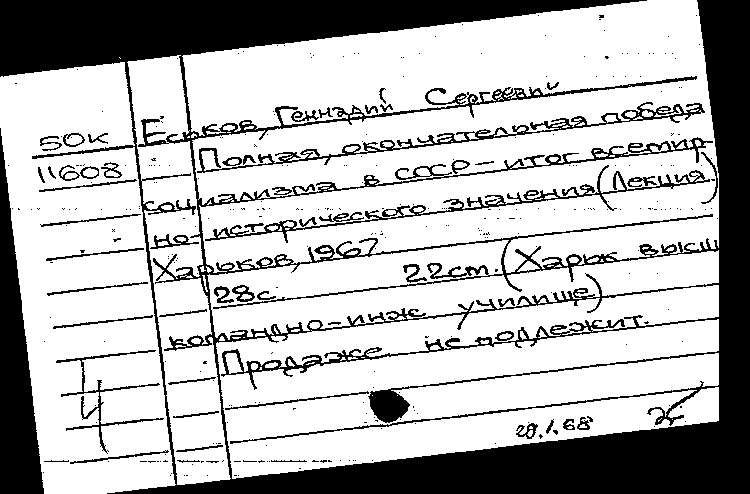 50К Еськов, Геннадий Сергеевич
11608 Полная, окончательная победа
социализма в СССР - итог всемир-
но-исторического значения (Лекция)
Харьков, 1967.
28с. 22cm. (Харьк высш
командно-инж училище)
Продаже не подлежит.
4
29.1.68